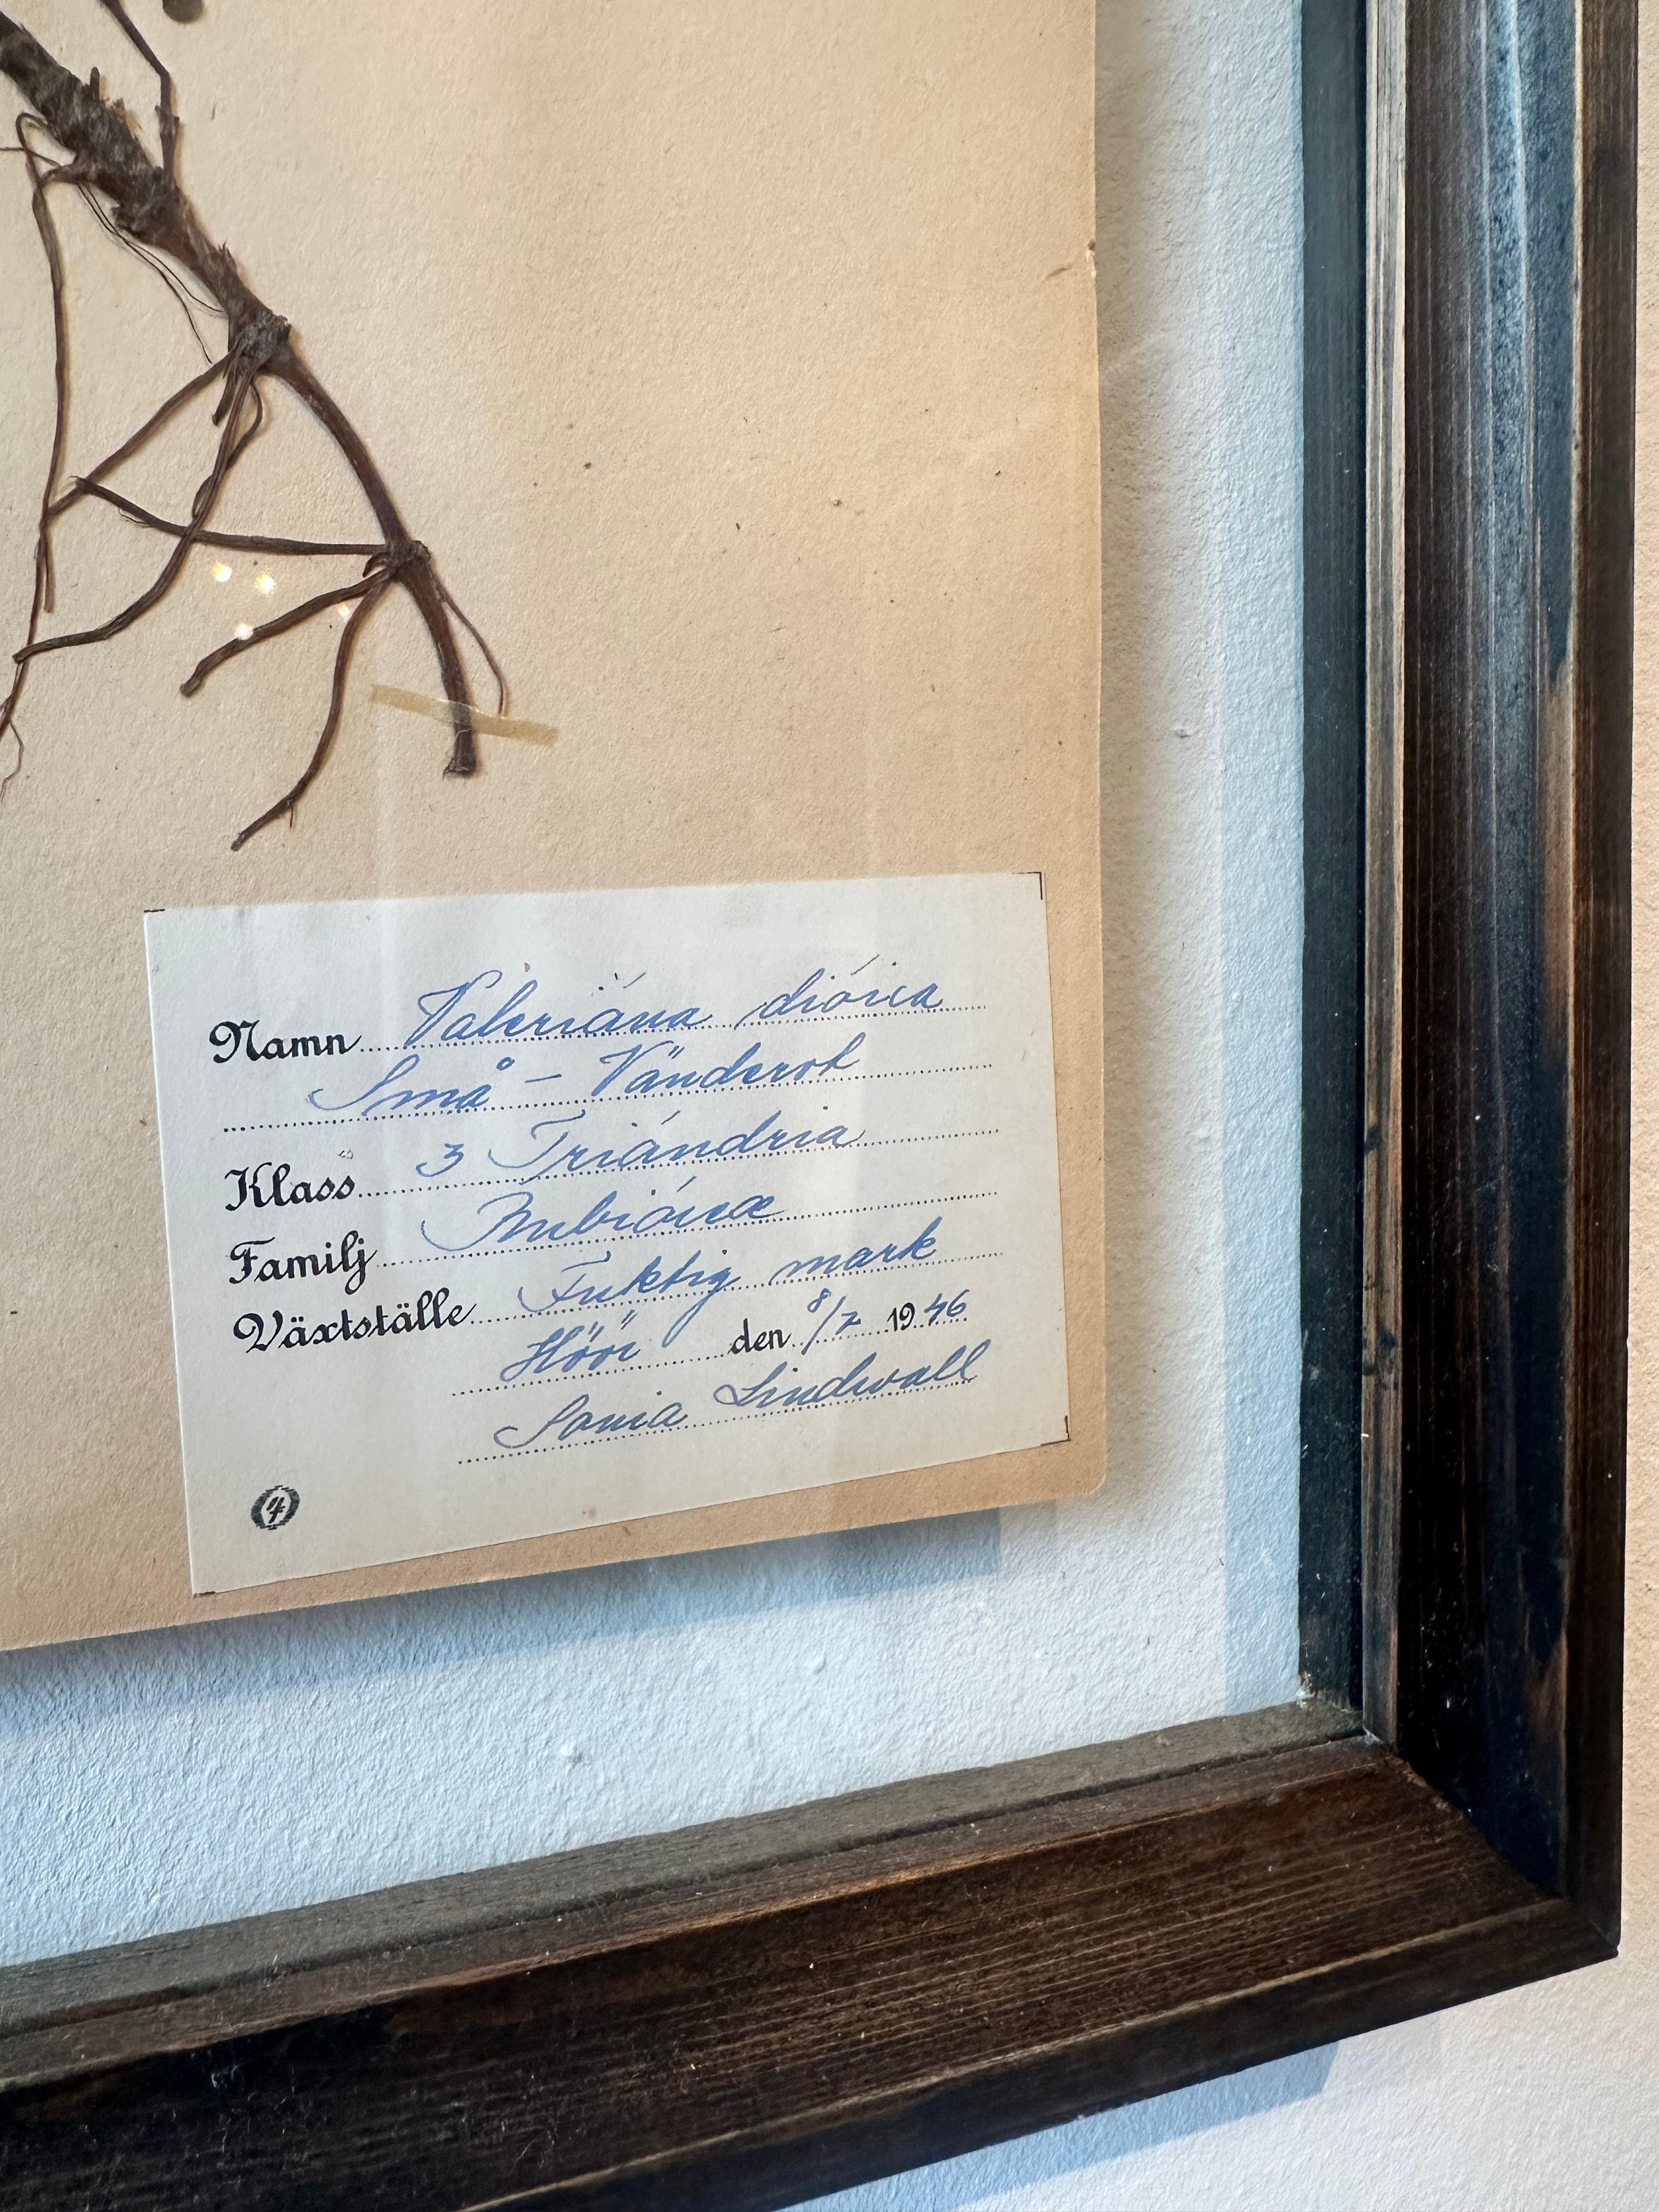 Namn Valeriána dióica
Små - Vänderot
Klass 3 Triándria
Familj Rubiáceæ
Växtställe Fuktig mark
Höör den 8/7 1946
Sonia Lindwall
4